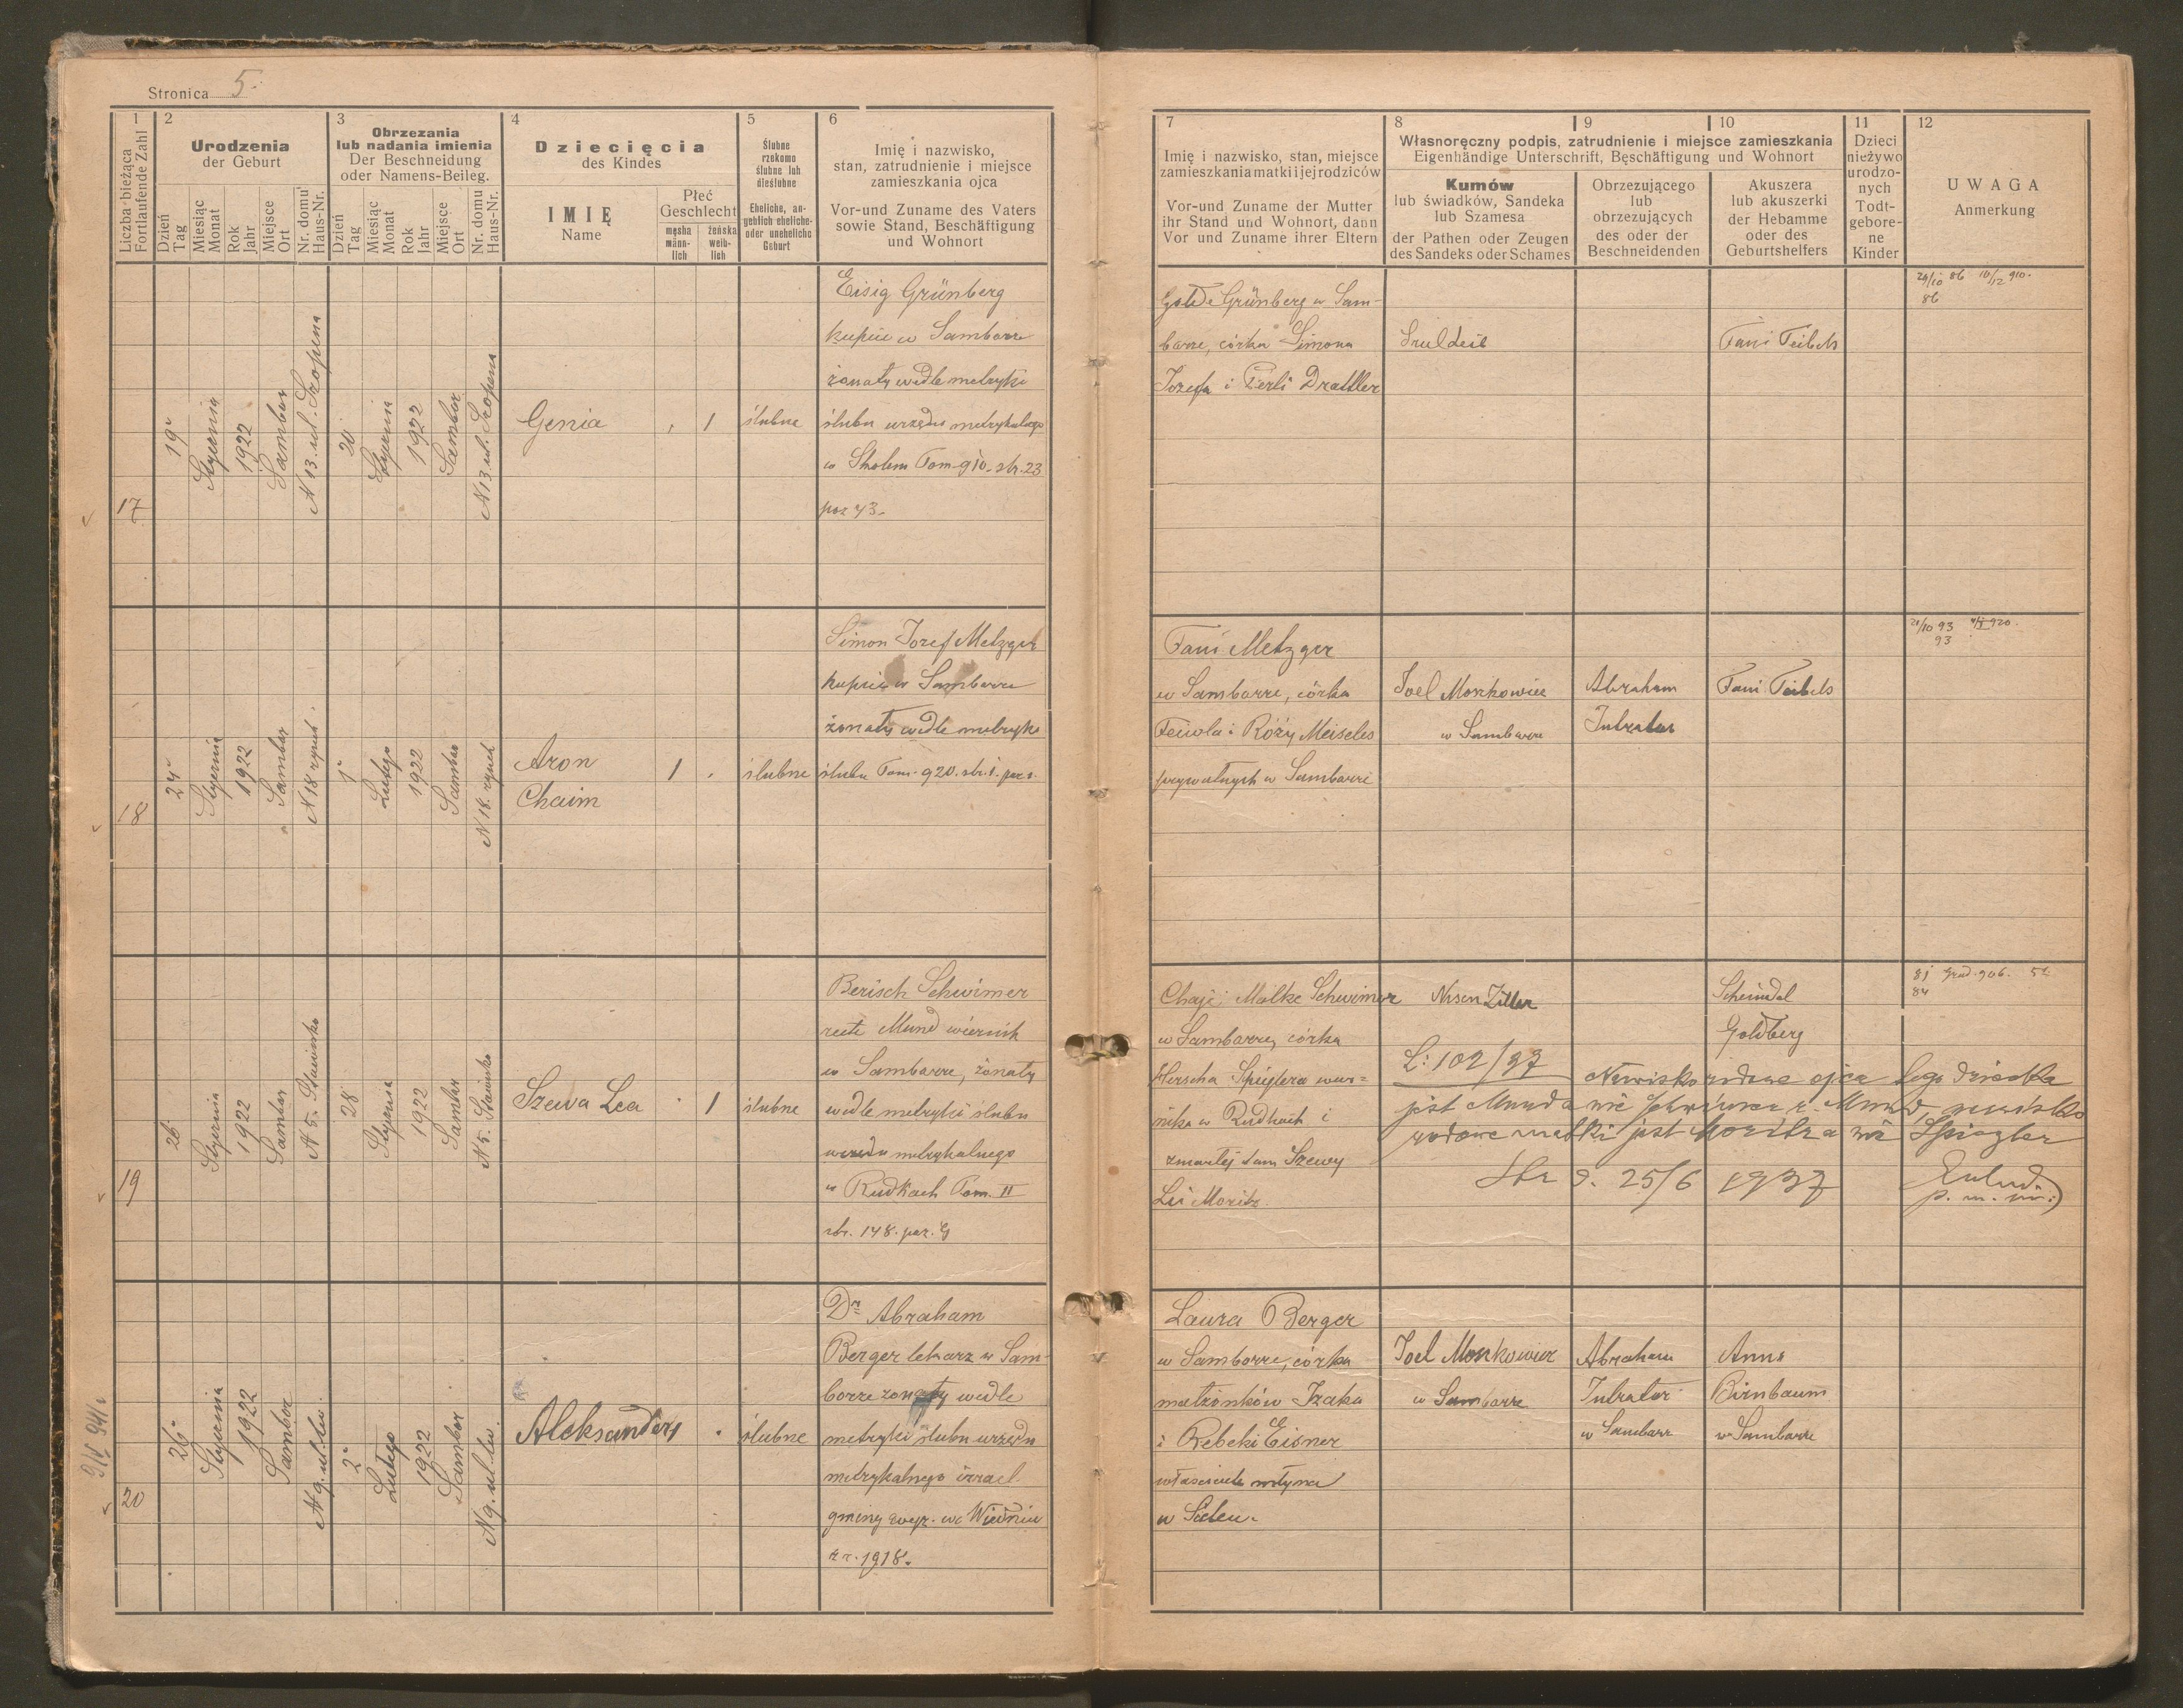 Stronica 5.
1
Liczba bieżąca
Fortlaufende Zahl
2
Urodzenia
der Geburt
Dzień
Tag
Miesiąc
Monat
Rok
Jahr
Miejsce
Ort
Nr. domu
Haus-Nr.
3
Obrzezania
lub nadania imienia
Der Beschneidung
oder Namens-Beileg.
Dzień
Tag
Miesiąc
Monat
Rok
Jahr
Miejsce
Ort
Nr. domu
Haus-Nr.
4
Dziecięcia
des Kindes
IMIĘ
Name
Płeć
Geschlecht
męska
männ-
lich
żeńska
weib-
lich
5
Ślubne
rzekomo
ślubne lub
nieślubne
Eheliche, an-
geblich eheliche-
oder uneheliche
Geburt
6
Imię i nazwisko,
stan, zatrudnienie i miejsce
zamieszkania ojca
Vor-und Zuname des Vaters
sowie Stand, Beschäftigung
und Wohnort
7
Imię i nazwisko, stan, miejsce
zamieszkania matki i jej rodziców
Vor-und Zuname der Mutter
ihr Stand und Wohnort, dann
Vor und Zuname ihrer Eltern
8
9
10
Własnoręczny podpis, zatrudnienie i miejsce zamieszkania
Eigenhändige Unterschrift, Beschäftigung und Wohnort
Kumów
lub świadków, Sandeka
lub Szamesa
der Pathen oder Zeugen
des Sandeks oder Schames
Obrzezującego
lub
obrzezujących
des oder der
Beschneidenden
Akuszera
lub akuszerki
der Hebamme
oder des
Geburtshelfers
11
Dzieci
nieżywo
urodzo-
nych
Todt-
gebore-
ne
Kinder
12
UWAGA
Anmerkung
17
19
Stycznia
1922
Sambor
N 13. ul. Szopena
20
Stycznia
1922
Sambor
N 13 ul. Szopena
Genia
1
ślubne
Eisig Grünberg
kupiec w Samborze
żonaty wedle metryki
ślubu urzędu metrykalnego
w Skolem Tom 910. str. 23
poz 43.
Golde Grünberg w Sam-
borze, córka Simona
Józefa i Perli Drattler
Srul Leib
Fani Teibels
29/10 86 10/12 910.
86
18
24
Stycznia
1922
Sambor
N 18 rynek.
1
Lutego
1922
Sambor
N 18. rynek
Aron
Chaim
1
ślubne
Simon Jozef Metzger
kupiec w Samborze
żonaty wedle metryki
ślubu Tom. 920. str. 1. poz 1.
Fani Metzger
w Samborze, córka
Feiwla i Róży Meiseles
prywatnych w Samborze
Joel Moszkowicz
w Samborze
Abraham
Intrator
Fani Teibels
21/10 93
93
19
26
Stycznia
1922
Sambor
N 5. Stawisko
28
Stycznia
1922
Sambor
N 5. Stawisko
Szewa Lea
1
ślubne
Berisch Schwimer
recte Mund wiernik
w Samborze, żonaty
wedle metryki ślubu
urzędu metrykalnego
w Rudkach Tom. II
str. 148. poz. 9
Chaje Malke Schwimer
w Samborze, córka
Herscha Spieglera wier-
nika w Rudkach i
zmarłej tam Szewy
Lei Moritz.
Nisen Ziller
Scheindel
Goldberg
81 grud. 906.
84
L: 102/37
Nazwisko rodowe ojca tego dziecka
jest Munda nie Schwimer r. Mund, nazwisko
rodowe matki jest Moritza nie Spiegler
Str d. 25/6 1937
20
26
Stycznia
1922
Sambor
N 9. ul. Lw.
2
Lutego
1922
Sambor
N 9. ul. Lw.
Aleksander
1
ślubne
Dr Abraham
Berger lekarz w Sam-
borze żonaty wedle
metryki ślubu urzędu
metrykalnego izrael.
gminy wyz. we Wiedniu
z r. 1918.
Laura Berger
w Samborze, córka
małżonków Izaka
i Rebeki Eisner
właściciele młyna
Joel Moszkowicz
w Samborze
Abraham
Intrator
w Sambor
Anna
Birnbaum
w Samborze